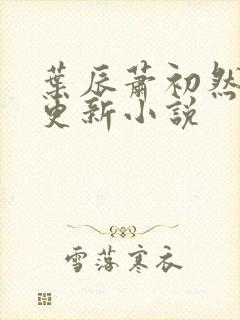 葉辰蕭初然
更新小說
雪落寒衣